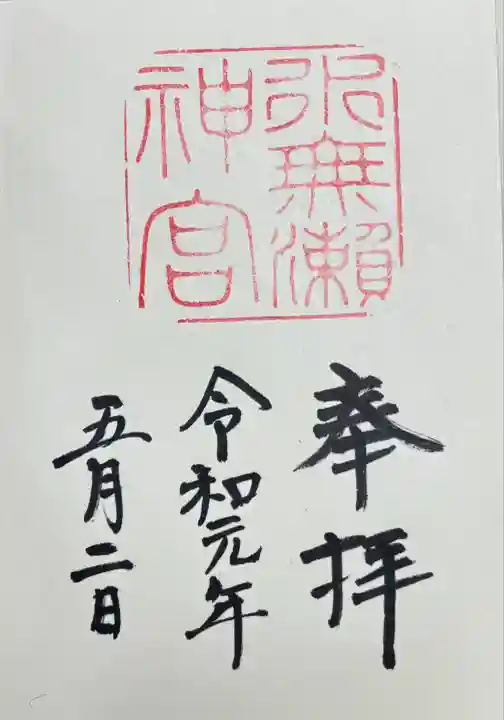 水無瀬
神宮
奉拝
令和元年
五月二日